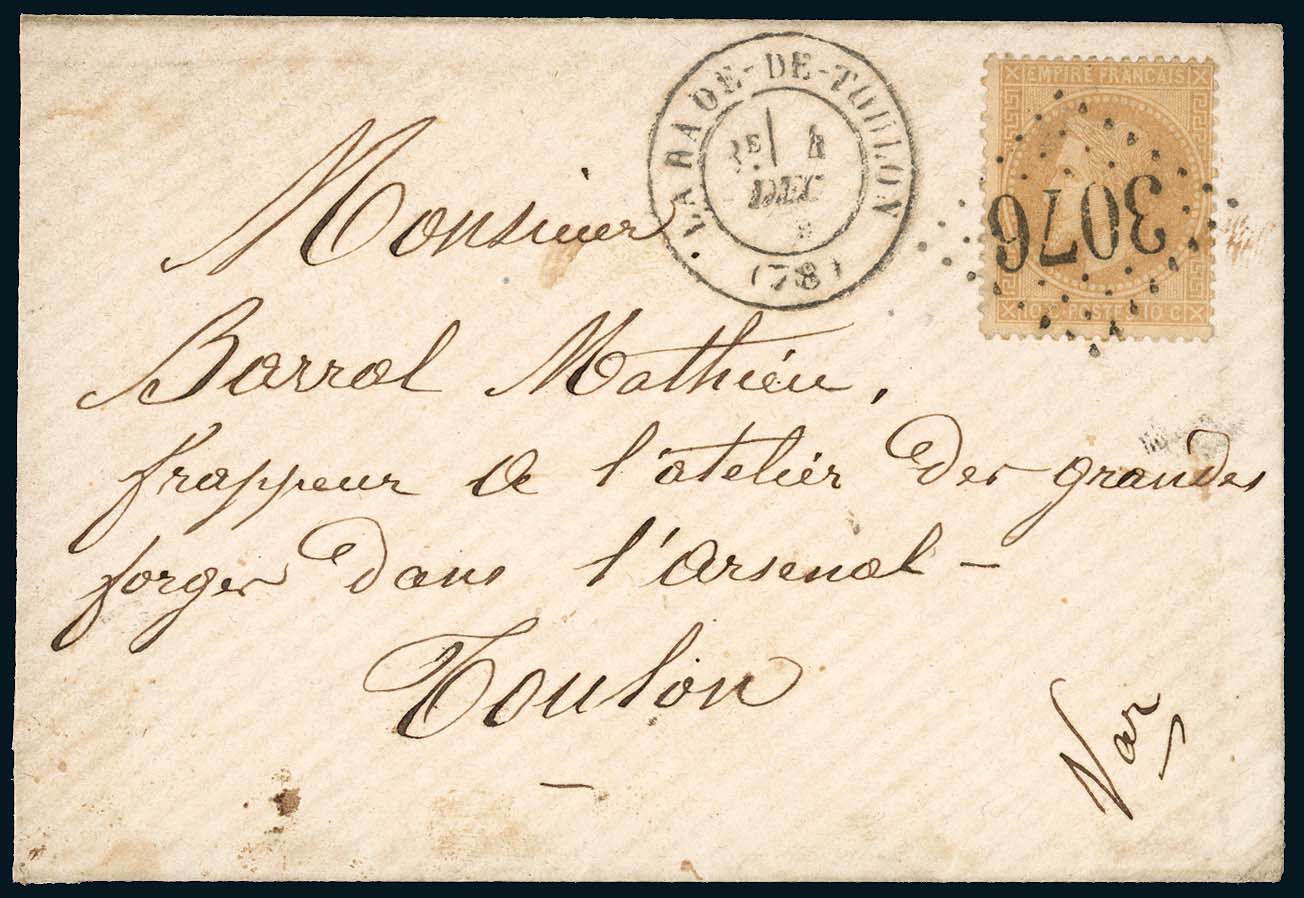 LA RADE-DE-TOULON
3E 4
DEC
(78)
EMPIRE FRANCAIS
3076
10 C · POSTES · 10 C
Monsieur
Barral Mathieu,
frappeur de l'atelier des grandes
forges dans l'arsenal -
Toulon
Var